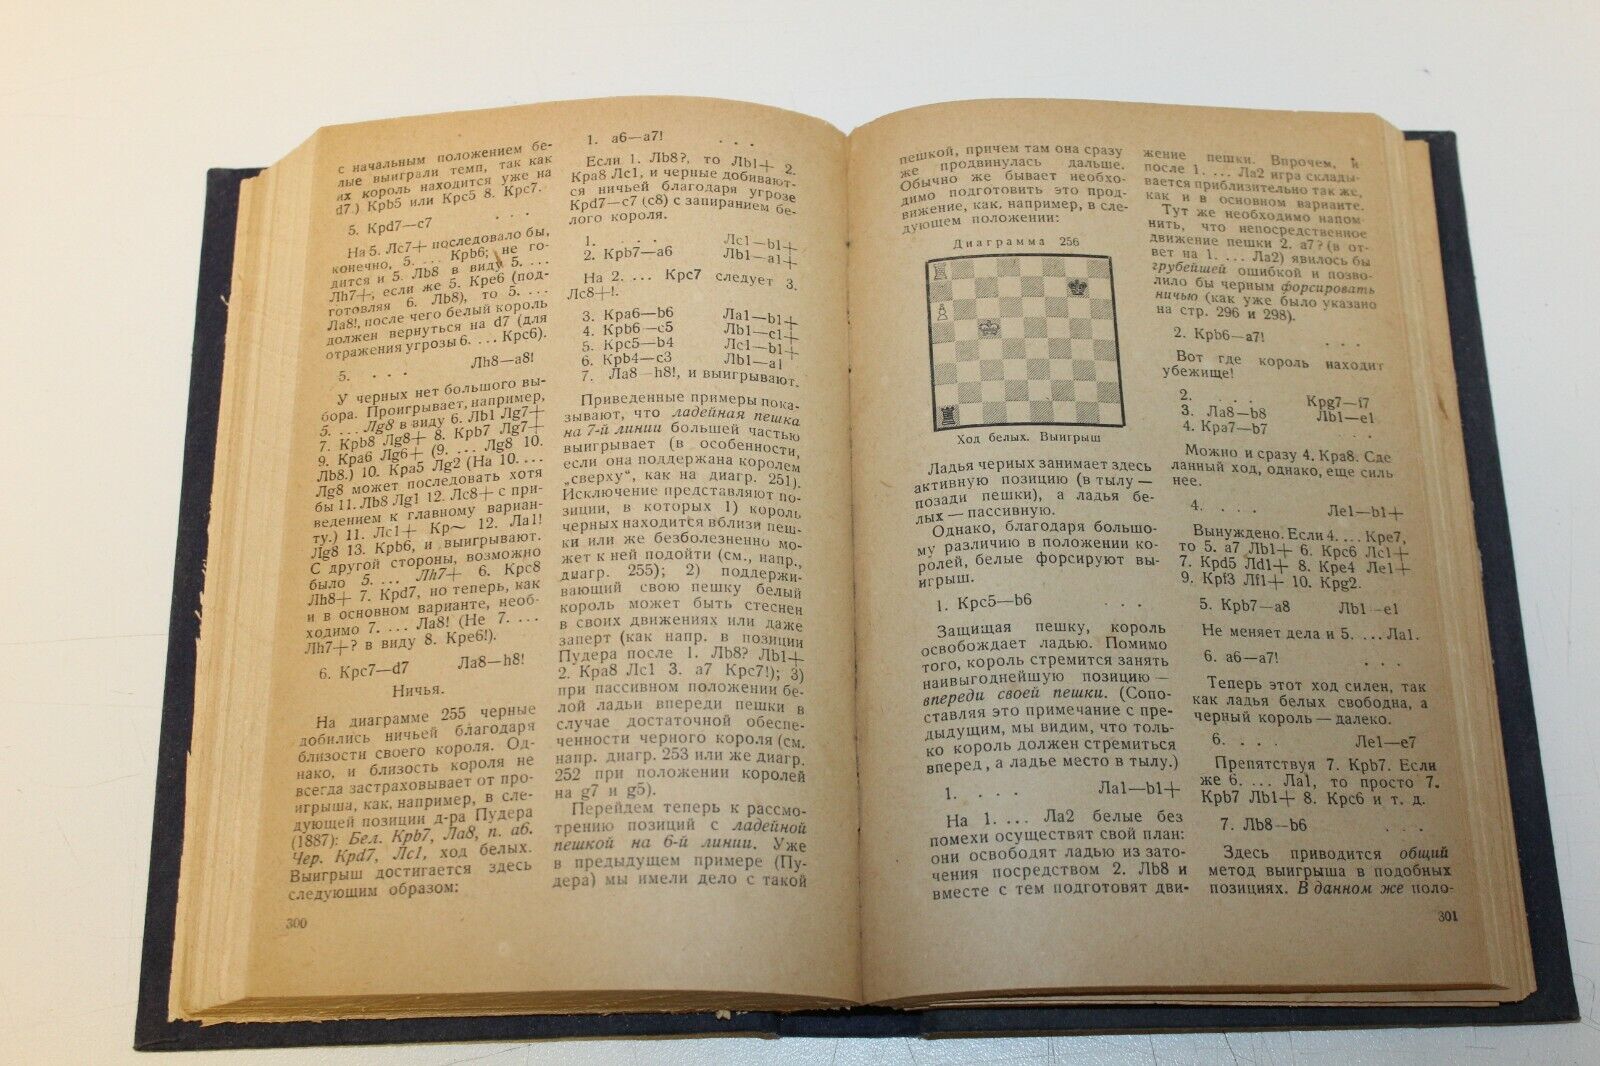 с начальным положением бе-
лые выиграли темп, так как
их король находится уже на
d7.) Крb5 или Крс5 8. Крс7.
5. Крd7—с7 . . .
На 5. Лс7+ последовало бы,
конечно, 5. ... Крb6; не го-
дится и 5. Лb8 в виду 5. ...
Лh7+, если же 5. Кре6 (под-
готовляя 6. Лb8), то 5. ...
Ла8!, после чего белый король
должен вернуться на d7 (для
отражения угрозы 6. ... Крс6).
5. . . . Лh8—а8!
У черных нет большого вы-
бора. Проигрывает, например,
5. ... Лg8 в виду 6. Лb1 Лg7+
7. Крb8 Лg8+ 8. Крb7 Лg7+
9. Кра6 Лg6+ (9. ... Лg8 10.
Лb8.) 10. Кра5 Лg2 (На 10. ...
Лg8 может последовать хотя
бы 11. Лb8 Лg1 12. Лс8+ с при-
ведением к главному вариан-
ту.) 11. Лс1+ Кр~ 12. Ла1!
Лg8 13. Крb6, и выигрывают.
С другой стороны, возможно
было 5. ... Лh7+ 6. Крс8
Лh8+ 7. Крd7, но теперь, как
и в основном варианте, необ-
ходимо 7. ... Ла8! (Не 7. ...
Лh7+? в виду 8. Кре6!).
6. Крс7—d7 Ла8—h8!
Ничья.
На диаграмме 255 черные
добились ничьей благодаря
близости своего короля. Од-
нако, и близость короля не
всегда застраховывает от про-
игрыша, как, например, в сле-
дующей позиции д-ра Пудера
(1887): Бел. Крb7, Ла8, п. а6.
Чер. Крd7, Лс1, ход белых.
Выигрыш достигается здесь
следующим образом:
300
1. а6—а7! . . .
Если 1. Лb8?, то Лb1+ 2.
Кра8 Лс1, и черные добивают-
ся ничьей благодаря угрозе
Крd7—с7 (с8) с запиранием бе-
лого короля.
1. . . Лс1—b1+
2. Крb7—а6 Лb1—а1+
На 2. ... Крс7 следует 3.
Лс8+!.
3. Кра6—b6 Ла1—b1+
4. Крb6—с5 Лb1—с1+
5. Крс5—b4 Лс1—b1+
6. Крb4—с3 Лb1—а1
7. Ла8—h8!, и выигрывают.
Приведенные примеры пока-
зывают, что ладейная пешка
на 7-й линии большей частью
выигрывает (в особенности,
если она поддержана королем
„сверху“, как на диагр. 251).
Исключение представляют по-
зиции, в которых 1) король
черных находится вблизи пеш-
ки или же безболезненно мо-
жет к ней подойти (см., напр.,
диагр. 255); 2) поддержи-
вающий свою пешку белый
король может быть стеснен
в своих движениях или даже
заперт (как напр. в позиции
Пудера после 1. Лb8? Лb1+
2. Кра8 Лс1 3. а7 Крс7!); 3)
при пассивном положении бе-
лой ладьи впереди пешки в
случае достаточной обеспе-
ченности черного короля (см.
напр. диагр. 253 или же диагр.
252 при положении королей
на g7 и g5).
Перейдем теперь к рассмо-
трению позиций с ладейной
пешкой на 6-й линии. Уже
в предыдущем примере (Пу-
дера) мы имели дело с такой
пешкой, причем там она сразу
же продвинулась дальше.
Обычно же бывает необхо-
димо подготовить это прод-
вижение, как, например, в сле-
дующем положении:
Диаграмма 256
Ход белых. Выигрыш
Ладья черных занимает здесь
активную позицию (в тылу —
позади пешки), а ладья бе-
лых — пассивную.
Однако, благодаря большо-
му различию в положении ко-
ролей, белые форсируют вы-
игрыш.
1. Крс5—b6 . . .
Защищая пешку, король
освобождает ладью. Помимо
того, король стремится занять
наивыгоднейшую позицию —
впереди своей пешки. (Сопо-
ставляя это примечание с пре-
дыдущим, мы видим, что толь-
ко король должен стремиться
вперед, а ладье место в тылу.)
1. . . . Ла1—b1+
На 1. ... Ла2 белые без
помехи осуществят свой план:
они освободят ладью из зато-
чения посредством 2. Лb8 и
вместе с тем подготовят дви-
жение пешки. Впрочем, и
после 1. ... Ла2 игра склады-
вается приблизительно так же,
как и в основном варианте.
Тут же необходимо напом-
нить, что непосредственное
движение пешки 2. а7? (в от-
вет на 1. ... Ла2) явилось бы
грубейшей ошибкой и позво-
лило бы черным форсировать
ничью (как уже было указано
на стр. 296 и 298).
2. Крb6—а7! . . .
Вот где король находит
убежище!
2. . . . Крg7—f7
3. Ла8—b8 Лb1—е1
4. Кра7—b7 . . .
Можно и сразу 4. Кра8. Сде
ланный ход, однако, еще силь
нее.
4. . . . Ле1—b1+
Вынуждено. Если 4. ... Кре7,
то 5. а7 Лb1+ 6. Крс6 Лс1+
7. Крd5 Лd1+ 8. Кре4 Ле1+
9. Крf3 Лf1+ 10. Крg2.
5. Крb7—а8 Лb1—е1
Не меняет дела и 5. ... Ла1.
6. а6—а7! . . .
Теперь этот ход силен, так
как ладья белых свободна, а
черный король — далеко.
6. . . . Ле1—е7
Препятствуя 7. Крb7. Если
же 6. ... Ла1, то просто 7.
Крb7 Лb1+ 8. Крс6 и т. д.
7. Лb8—b6 . . .
Здесь приводится общий
метод выигрыша в подобных
позициях. В данном же поло-
301